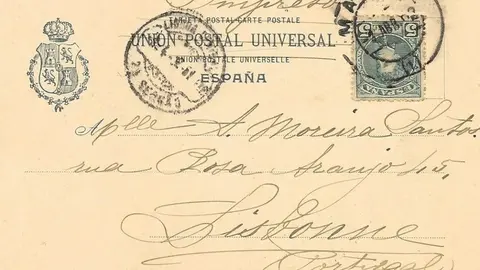 Impresos
TARJETA POSTAL-CARTE POSTALE
UNION POSTAL UNIVERSAL
UNION POSTALE UNIVERSELLE
ESPAÑA
MA
Mplle A. Moreira Santos.
rua Rosa Araujo 45,
Lisbonne
(Portugal)